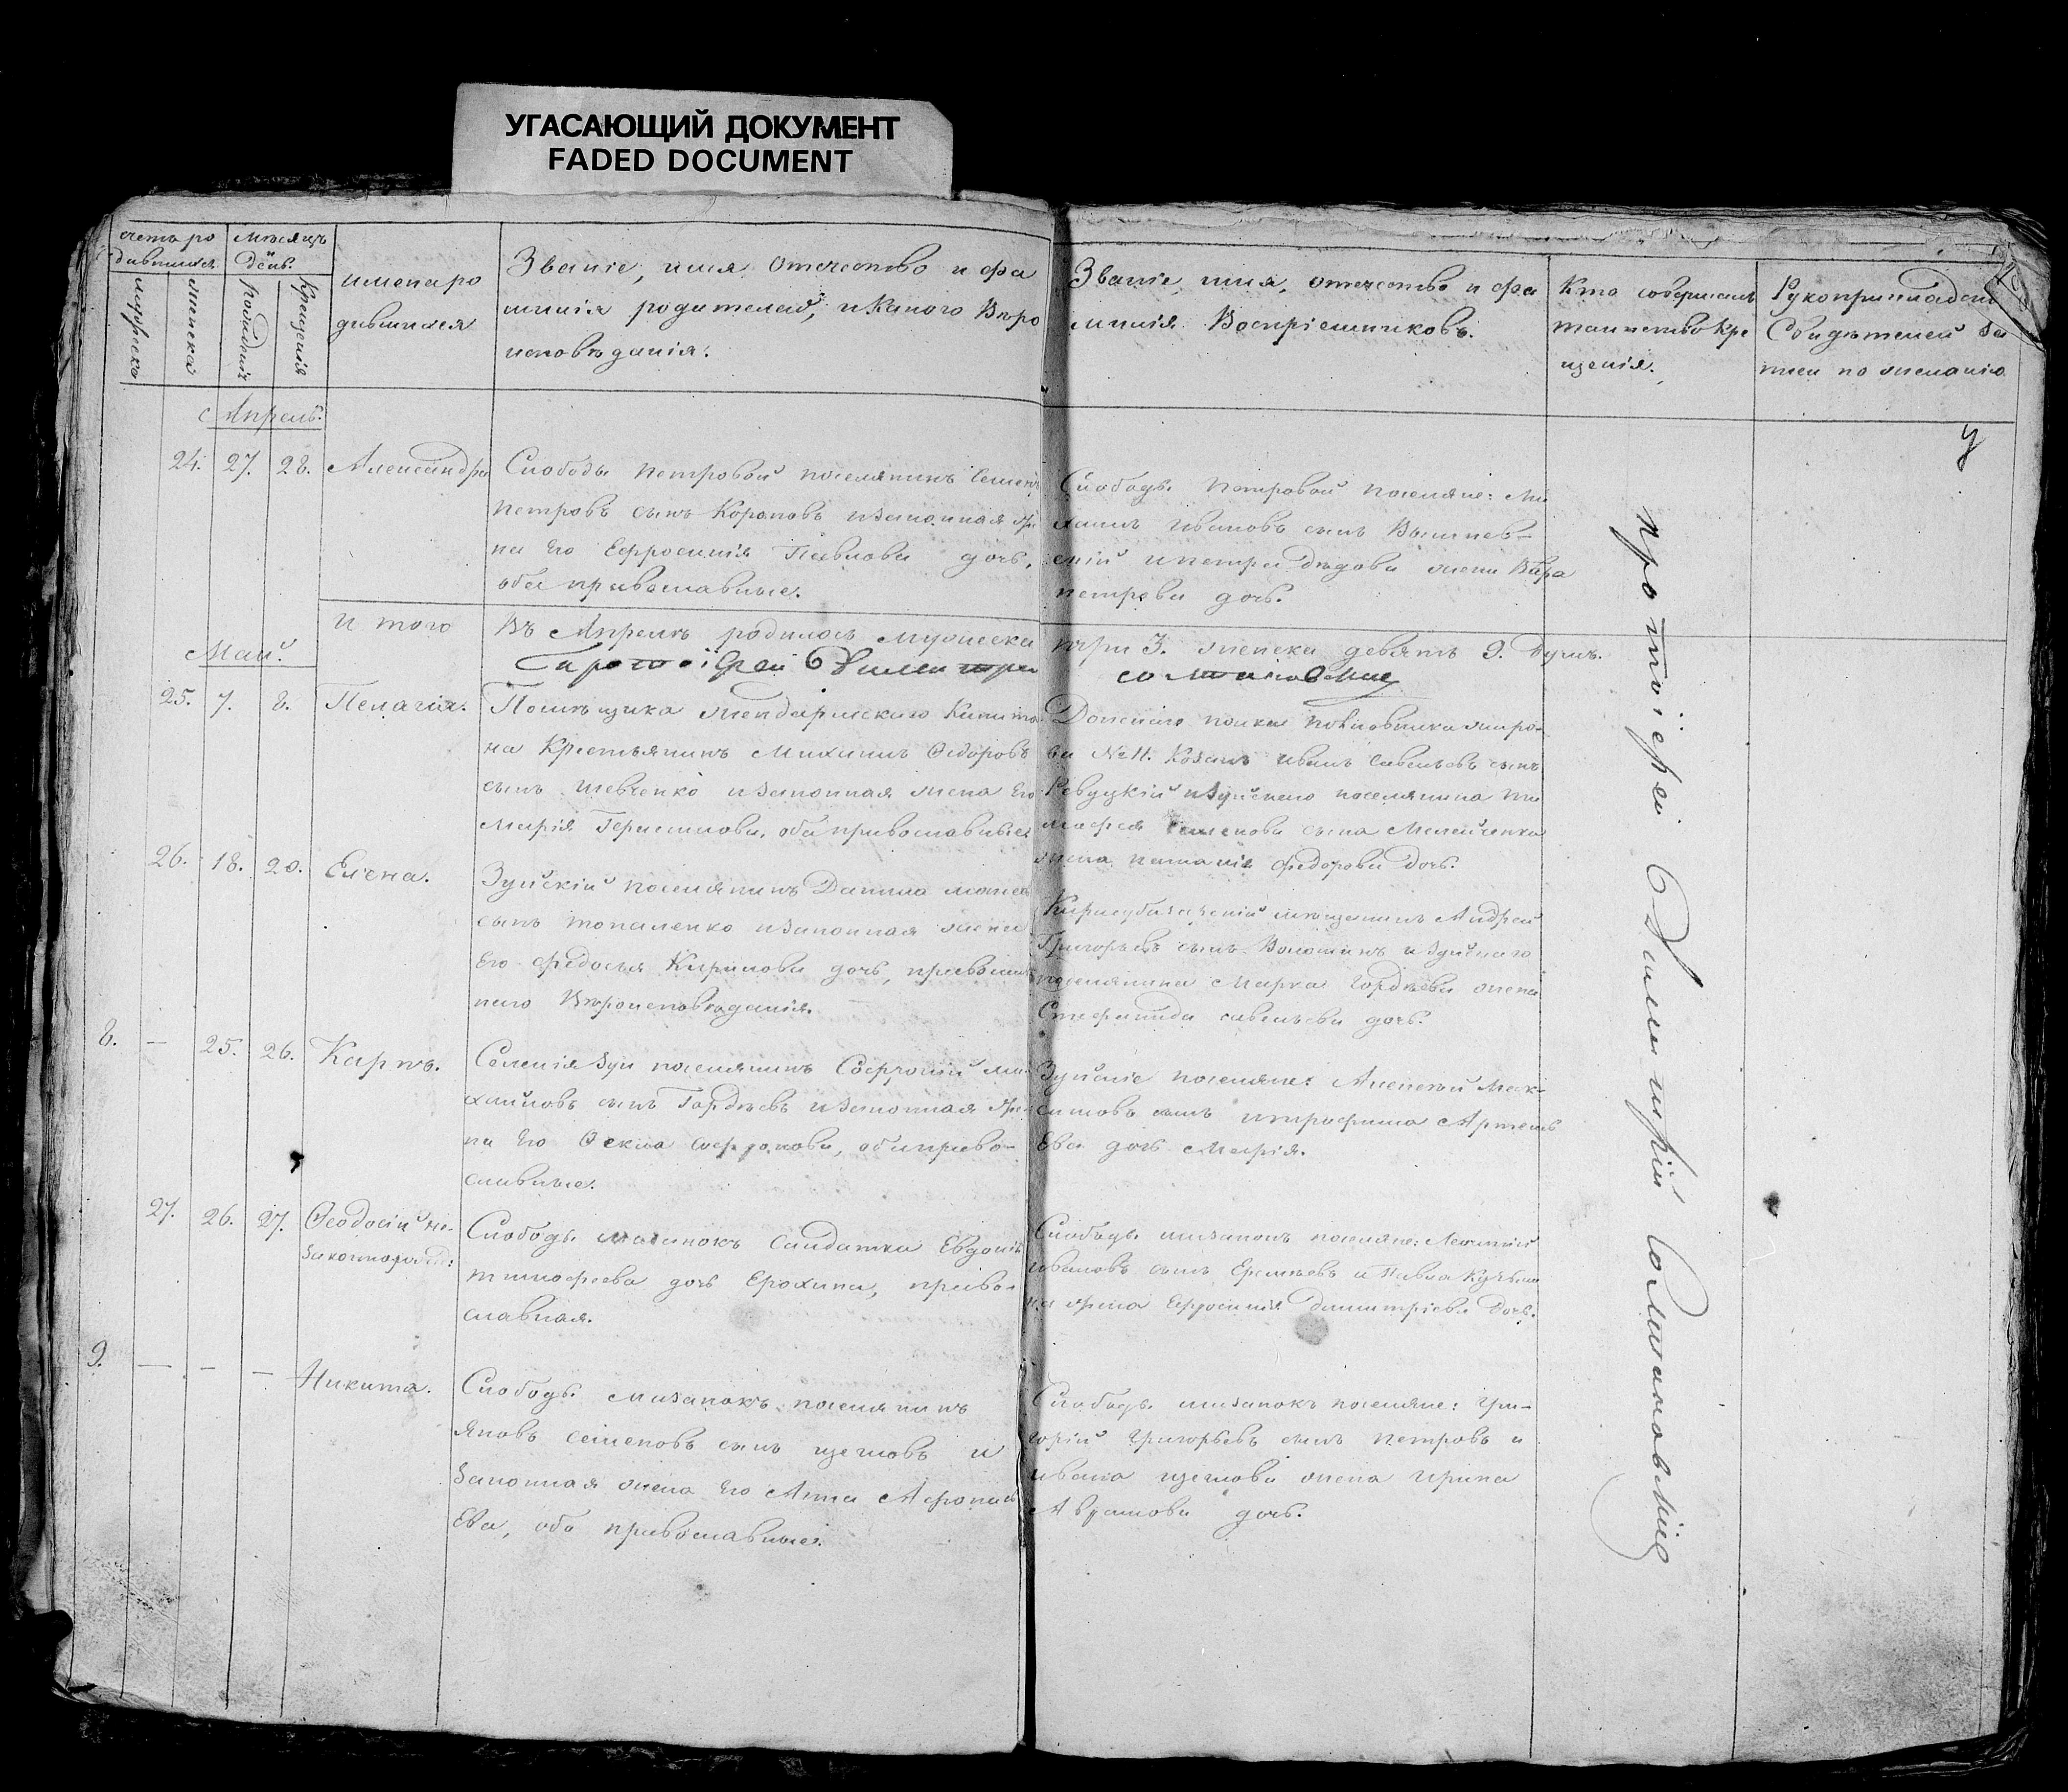 УГАСАЮЩИЙ ДОКУМЕНТ
FADED DOCUMENT
счетъ ро
дившихся
мужеска
женска
мѣсяцъ
и
день.
рожденія
крещенія
имена ро
дившихся
Званіе, имя, отечество и фа
милія родителей, и какого Вѣро
исповѣданія.
Званіе, имя, отечество и фа
милія Воспріемниковъ.
Кто совершалъ
таинство кре
щенія.
Рукоприкладст
Свидѣтелей за
писи по желанію
Апрель.
24. 27. 28. Александра
Слободы Петровой поселянинъ Семенъ
Петровъ сынъ Короповъ и законная же
на Его Ефросинія Павлова дочь,
оба православные.
Слободы Петровой поселяне: Ми
хаилъ Ивановъ сынъ Вышнев-
скій и Петра Дѣдова жена Вѣра
петрова дочь.
и того
Въ Апрелѣ родилось мужеска
три 3. женска девять 9. душъ.
Протоіерей
Май.
25. 7. 8. Пелагія.
Помѣщика жандармскаго Капита
на Крестьянинъ Михаилъ Федоровъ
сынъ Шевченко и законная жена Его
Марія Герасимова, оба православные
Донскаго полка
ва №11. Козакъ Иванъ Савельевъ сынъ
Ревуцкій и Зуйскаго поселянина Ти
мофея Семенова сына
жена наталія Федорова Дочь.
26. 18. 20. Елена.
Зуйскій поселянинъ Данило
сынъ Топаленко и законная жена
Его Федосья Кирилова дочь, православ
наго Вѣроисповѣданія.
Карасубазарскій мѣщанинъ Андрей
Григорьевъ сынъ Волошинъ и Зуйскаго
поселянина Марка Гордѣева жена
Стефанида савельева дочь.
8. — 25. 26. Карпъ.
Селенія Зуи поселянинъ Софроній Ми
хайловъ сынъ Гордѣевъ и законная же
на Его Фекла Софронова, оба право-
славные.
Зуйскіе поселяне: Алексѣй Мак-
симовъ сынъ и трофима Артемь
Ева дочь Марія.
27. 26. 27. Феодосій не-
законнорожд:
Слободы мазанокъ Солдатка Евдокія
тимофеева дочь Ерохина, право-
славная.
Слободы мазанокъ поселяне: Леонтій
Ивановъ сынъ Еремѣевъ и Павла
на жена Ефросинія Димитріева Дочь.
9. — — — Никита.
Слободы мазанокъ поселянинъ
Яковъ Семеновъ сынъ щегловъ и
законная жена Его Анна Афонась
Ева, оба православные.
Слободы мазанокъ поселяне: Гри-
горій Григорьевъ сынъ Петровъ и
ивана щеглова жена Ирина
Абрамова дочь.
протоіерей